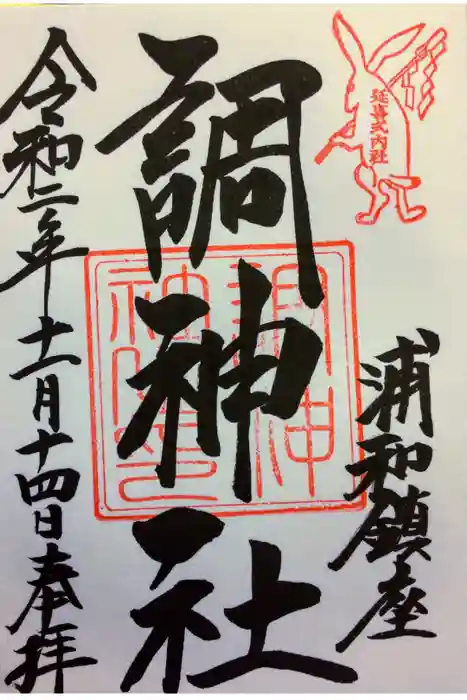 延喜式内社
浦和鎮座
調神社
調神
社之印
令和二年十一月十四日奉拝